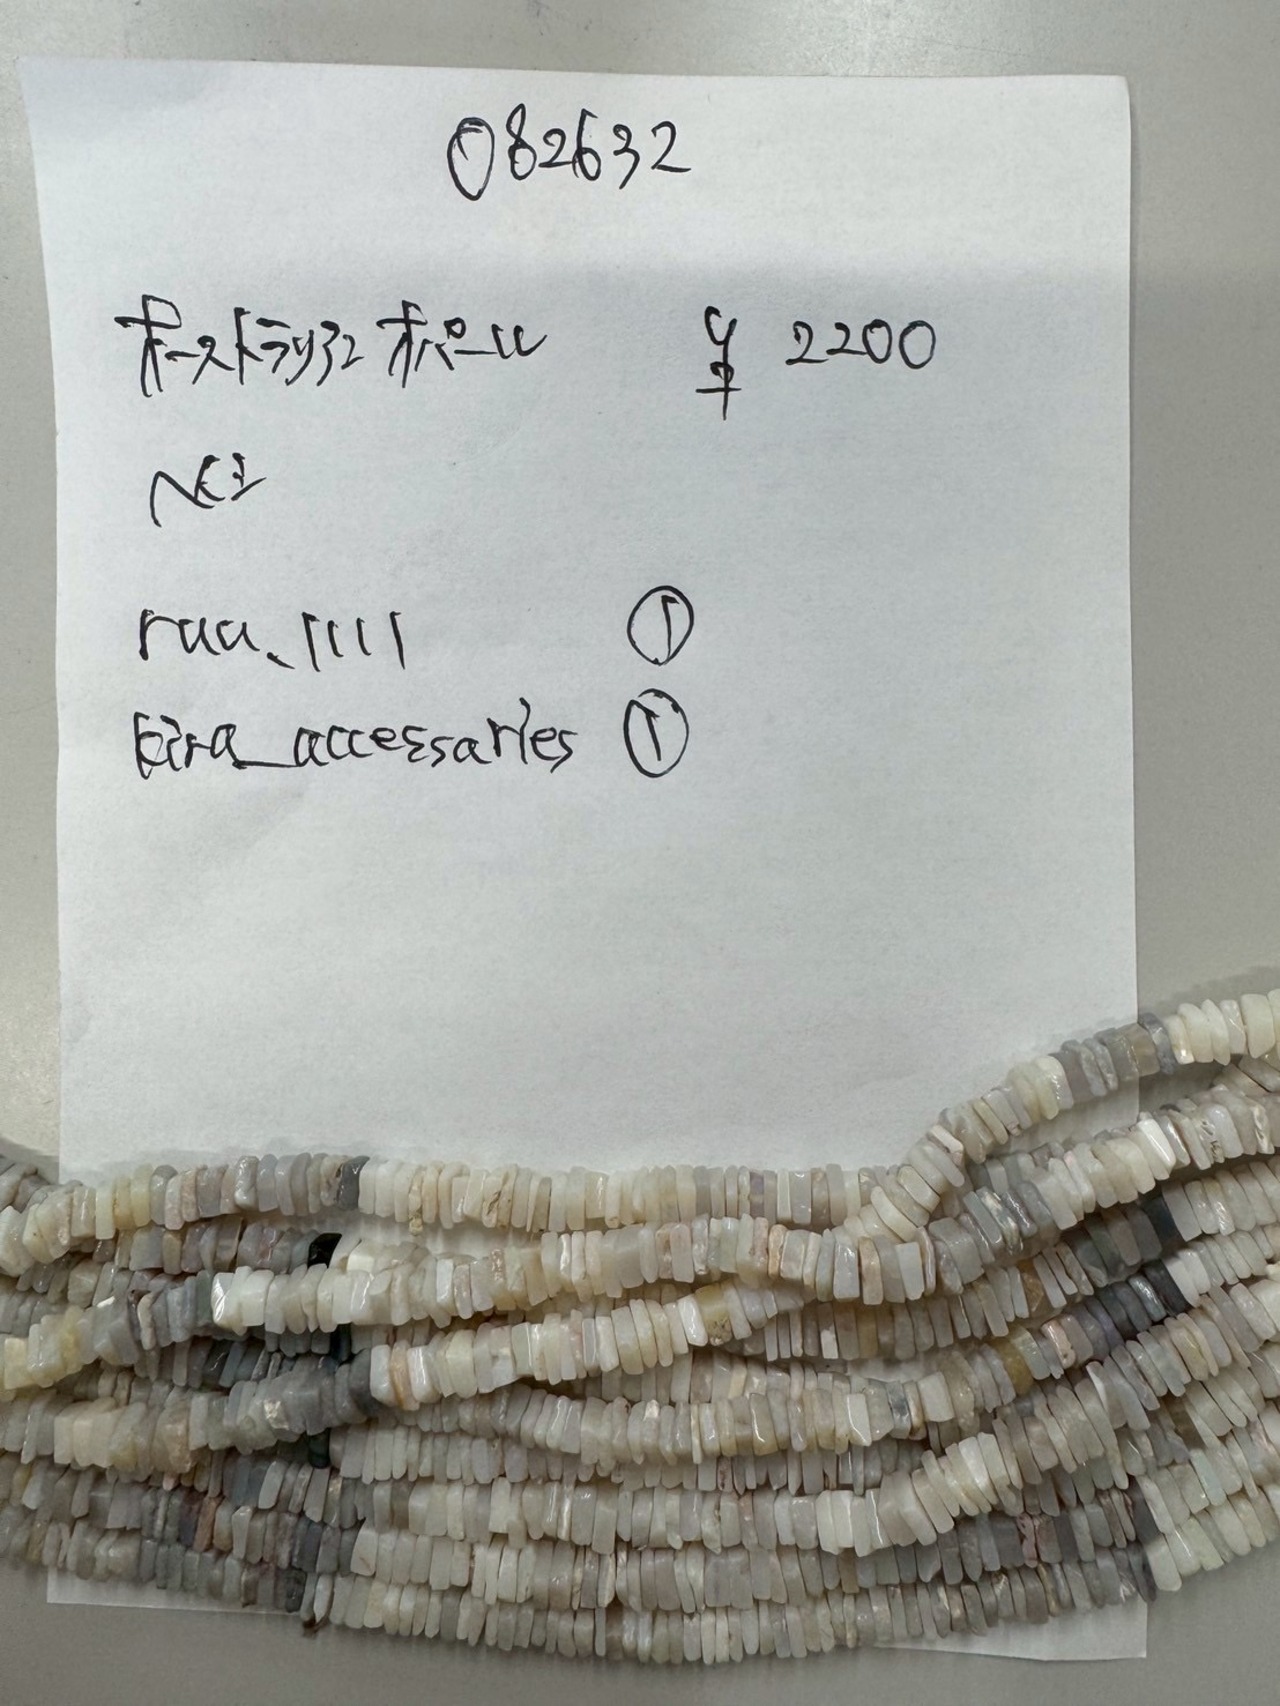 082632
オーストラリアン オパール ¥ 2200
ruu.1111 ①
kira_accessaries ①